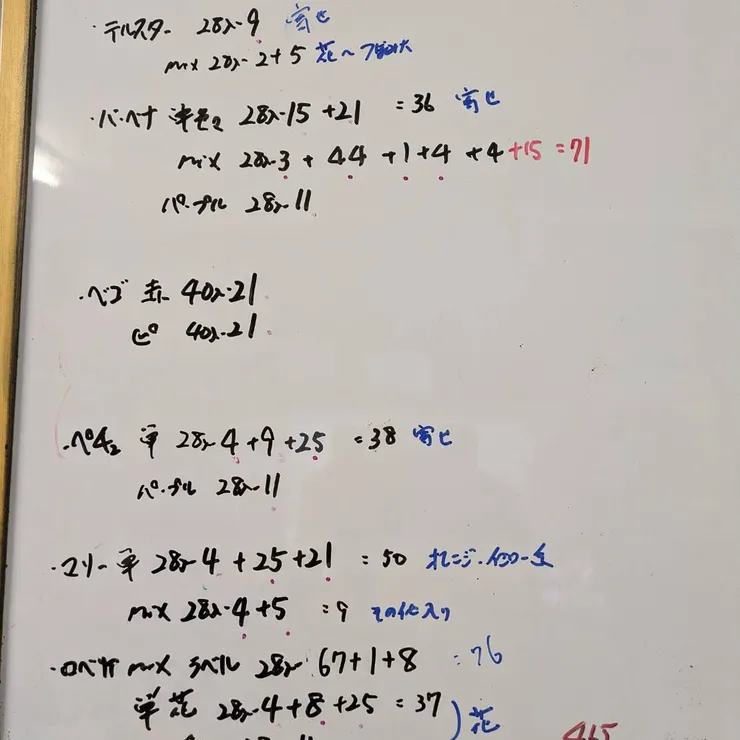 ・テルスター 28入-9 寄せ
mix 28入-2+5 花〜
・バーベナ 単色 28入-15+21 =36 寄せ
mix 28入-3+44+1+4+4+15=71
パープル 28入-11
・ベゴ 赤 40入-21
ピ 40入-21
・ペチ 単 28入-4+9+25 =38 寄せ
パープル 28入-11
・マリー 単 28入-4+25+21 =50 オレンジ・イエロー
mix 28入-4+5 =9 その他入り
・ロベリア mix ラベル 28入 67+1+8 =76
単 花 28入-4+8+25 =37 花
465